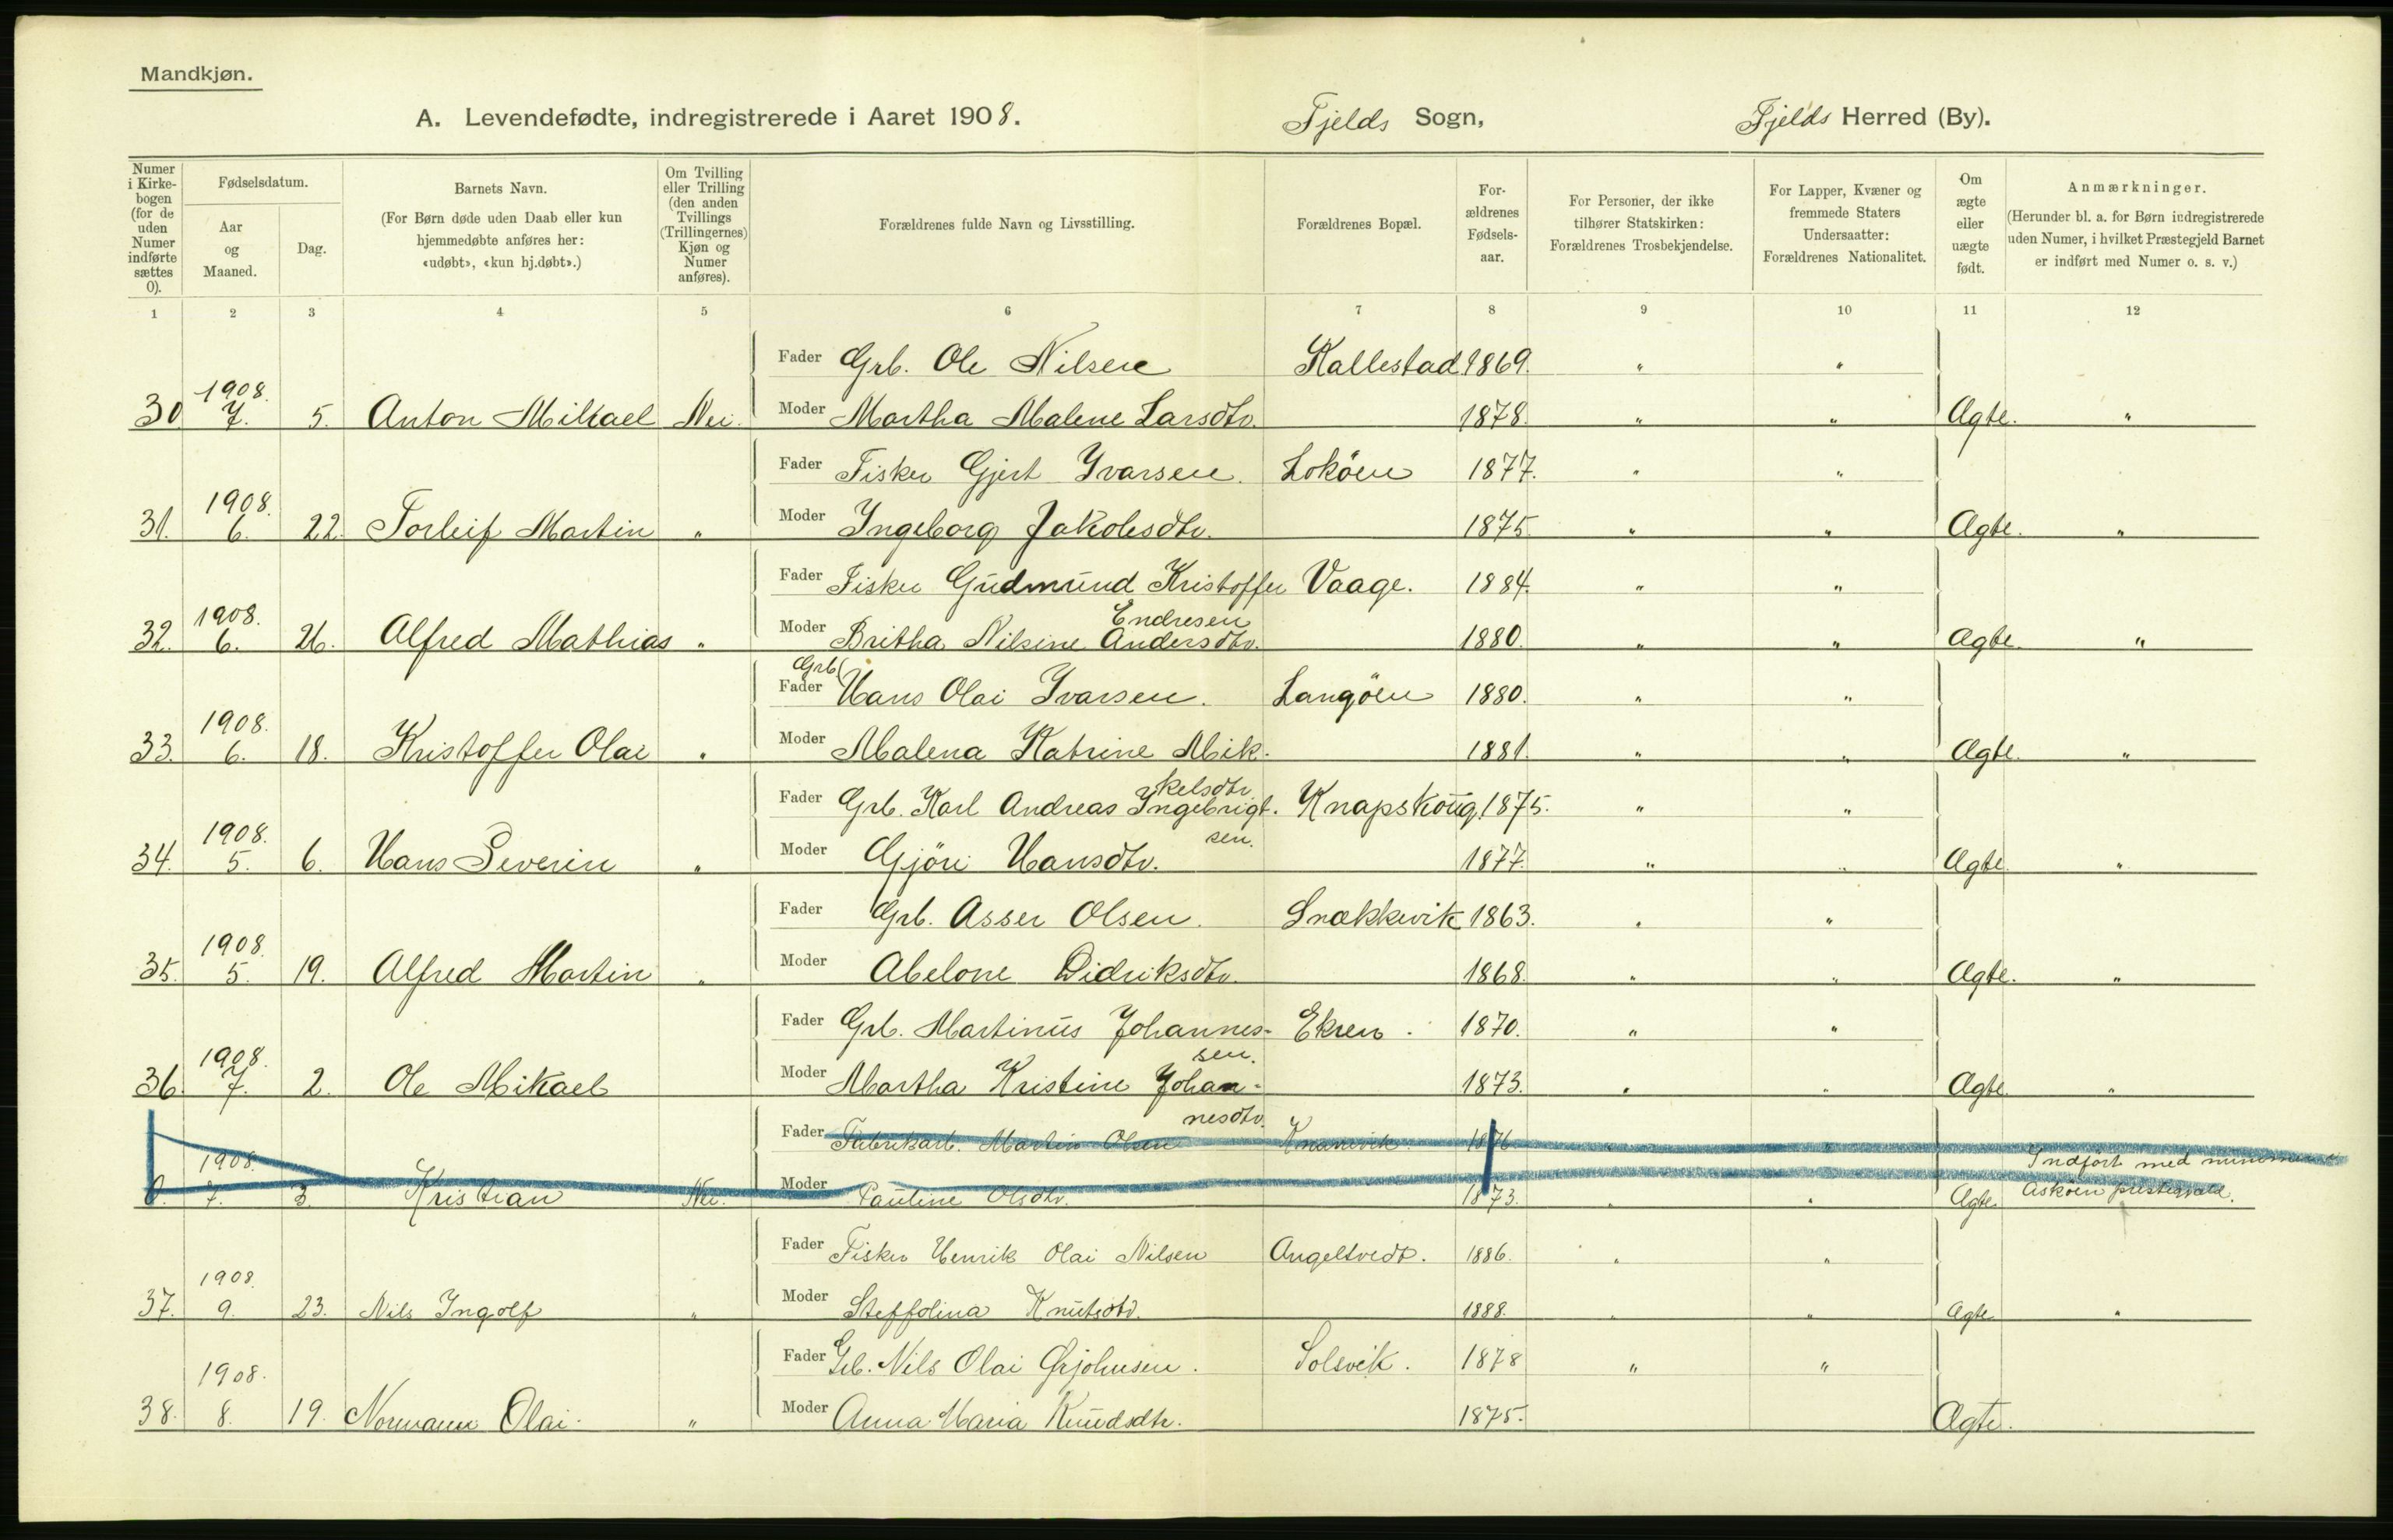 Mandkjøn.
A. Levendefødte, indregistrerede i Aaret 1908. Fjelds Sogn, Fjelds Herred (By).
Numer i Kirkebogen (for de uden Numer indførte sættes 0).
Fødselsdatum.
Aar og Maaned.
Dag.
Barnets Navn.
(For Børn døde uden Daab eller kun hjemmedøbte anføres her: «udøbt», «kun hj.døbt».)
Om Tvilling eller Trilling (den anden Tvillings (Trillingernes) Kjøn og Numer anføres).
Forældrenes fulde Navn og Livsstilling.
Forældrenes Bopæl.
Forældrenes Fødselsaar.
For Personer, der ikke tilhører Statskirken: Forældrenes Trosbekjendelse.
For Lapper, Kvæner og fremmede Staters Undersaatter: Forældrenes Nationalitet.
Om ægte eller uægte født.
Anmærkninger.
(Herunder bl. a. for Børn indregistrerede uden Numer, i hvilket Præstegjeld Barnet er indført med Numer o. s. v.)
1 2 3 4 5 6 7 8 9 10 11 12
Fader Grb. Ole Nilsen Kallestad 1869. " "
30 1908. 7. 5. Anton Mikael Nei. Moder Martha Malene Larsdtr. 1878. " " Ægte. "
Fader Fisker Gjert Ivarsen. Loköen 1877. " "
31. 1908. 6. 22. Torleif Martin " Moder Ingeborg Jakobsdtr. 1875. " " Ægte. "
Fader Fisker Gudmund Kristoffer Endresen Vaage. 1884. " "
32. 1908. 6. 26. Alfred Mathias " Moder Britha Nilsine Andersdtr. 1880. " " Ægte. "
Fader Grb. Hans Olai Ivarsen. Langöen 1880. " "
33. 1908. 6. 18. Kristoffer Olai " Moder Malena Katrine Mikkelsdtr. 1881. " " Ægte. "
Fader Grb. Karl Andreas Ingebrigtsen. Knapskoug. 1875. " "
34. 1908. 5. 6. Hans Severin " Moder Gjöri Hansdtr. 1877. " " Ægte. "
Fader Grb. Asser Olsen. Snekkevik 1863. " "
35. 1908. 5. 19. Alfred Martin " Moder Abelone Didriksdtr. 1868. " " Ægte. "
Fader Grb. Martinus Johannessen. Ekren. 1870. " "
36. 1908. 7. 2. Ole Mikael Moder Martha Kristine Johannesdtr. 1873. " " Ægte. "
Fader Fabrikarb. Martin Olsen 1876 "
0. 1908. 7. 3. Kristian Nei. Moder Pauline Olsdtr. 1873. " " Ægte. Indfört med nummer Asköen
Fader Fisker Henrik Olai Nilsen Angeltvedt. 1886. " "
37. 1908. 9. 23. Nils Ingolf " Moder Steffolina Knutsdtr. 1888. " " Ægte "
Fader Grb. Nils Olai Ørjohnsen. Solsvik. 1878 " "
38. 1908. 8. 19. Normann Olai. " Moder Anna Maria Knudsdtr. 1875. Ægte.